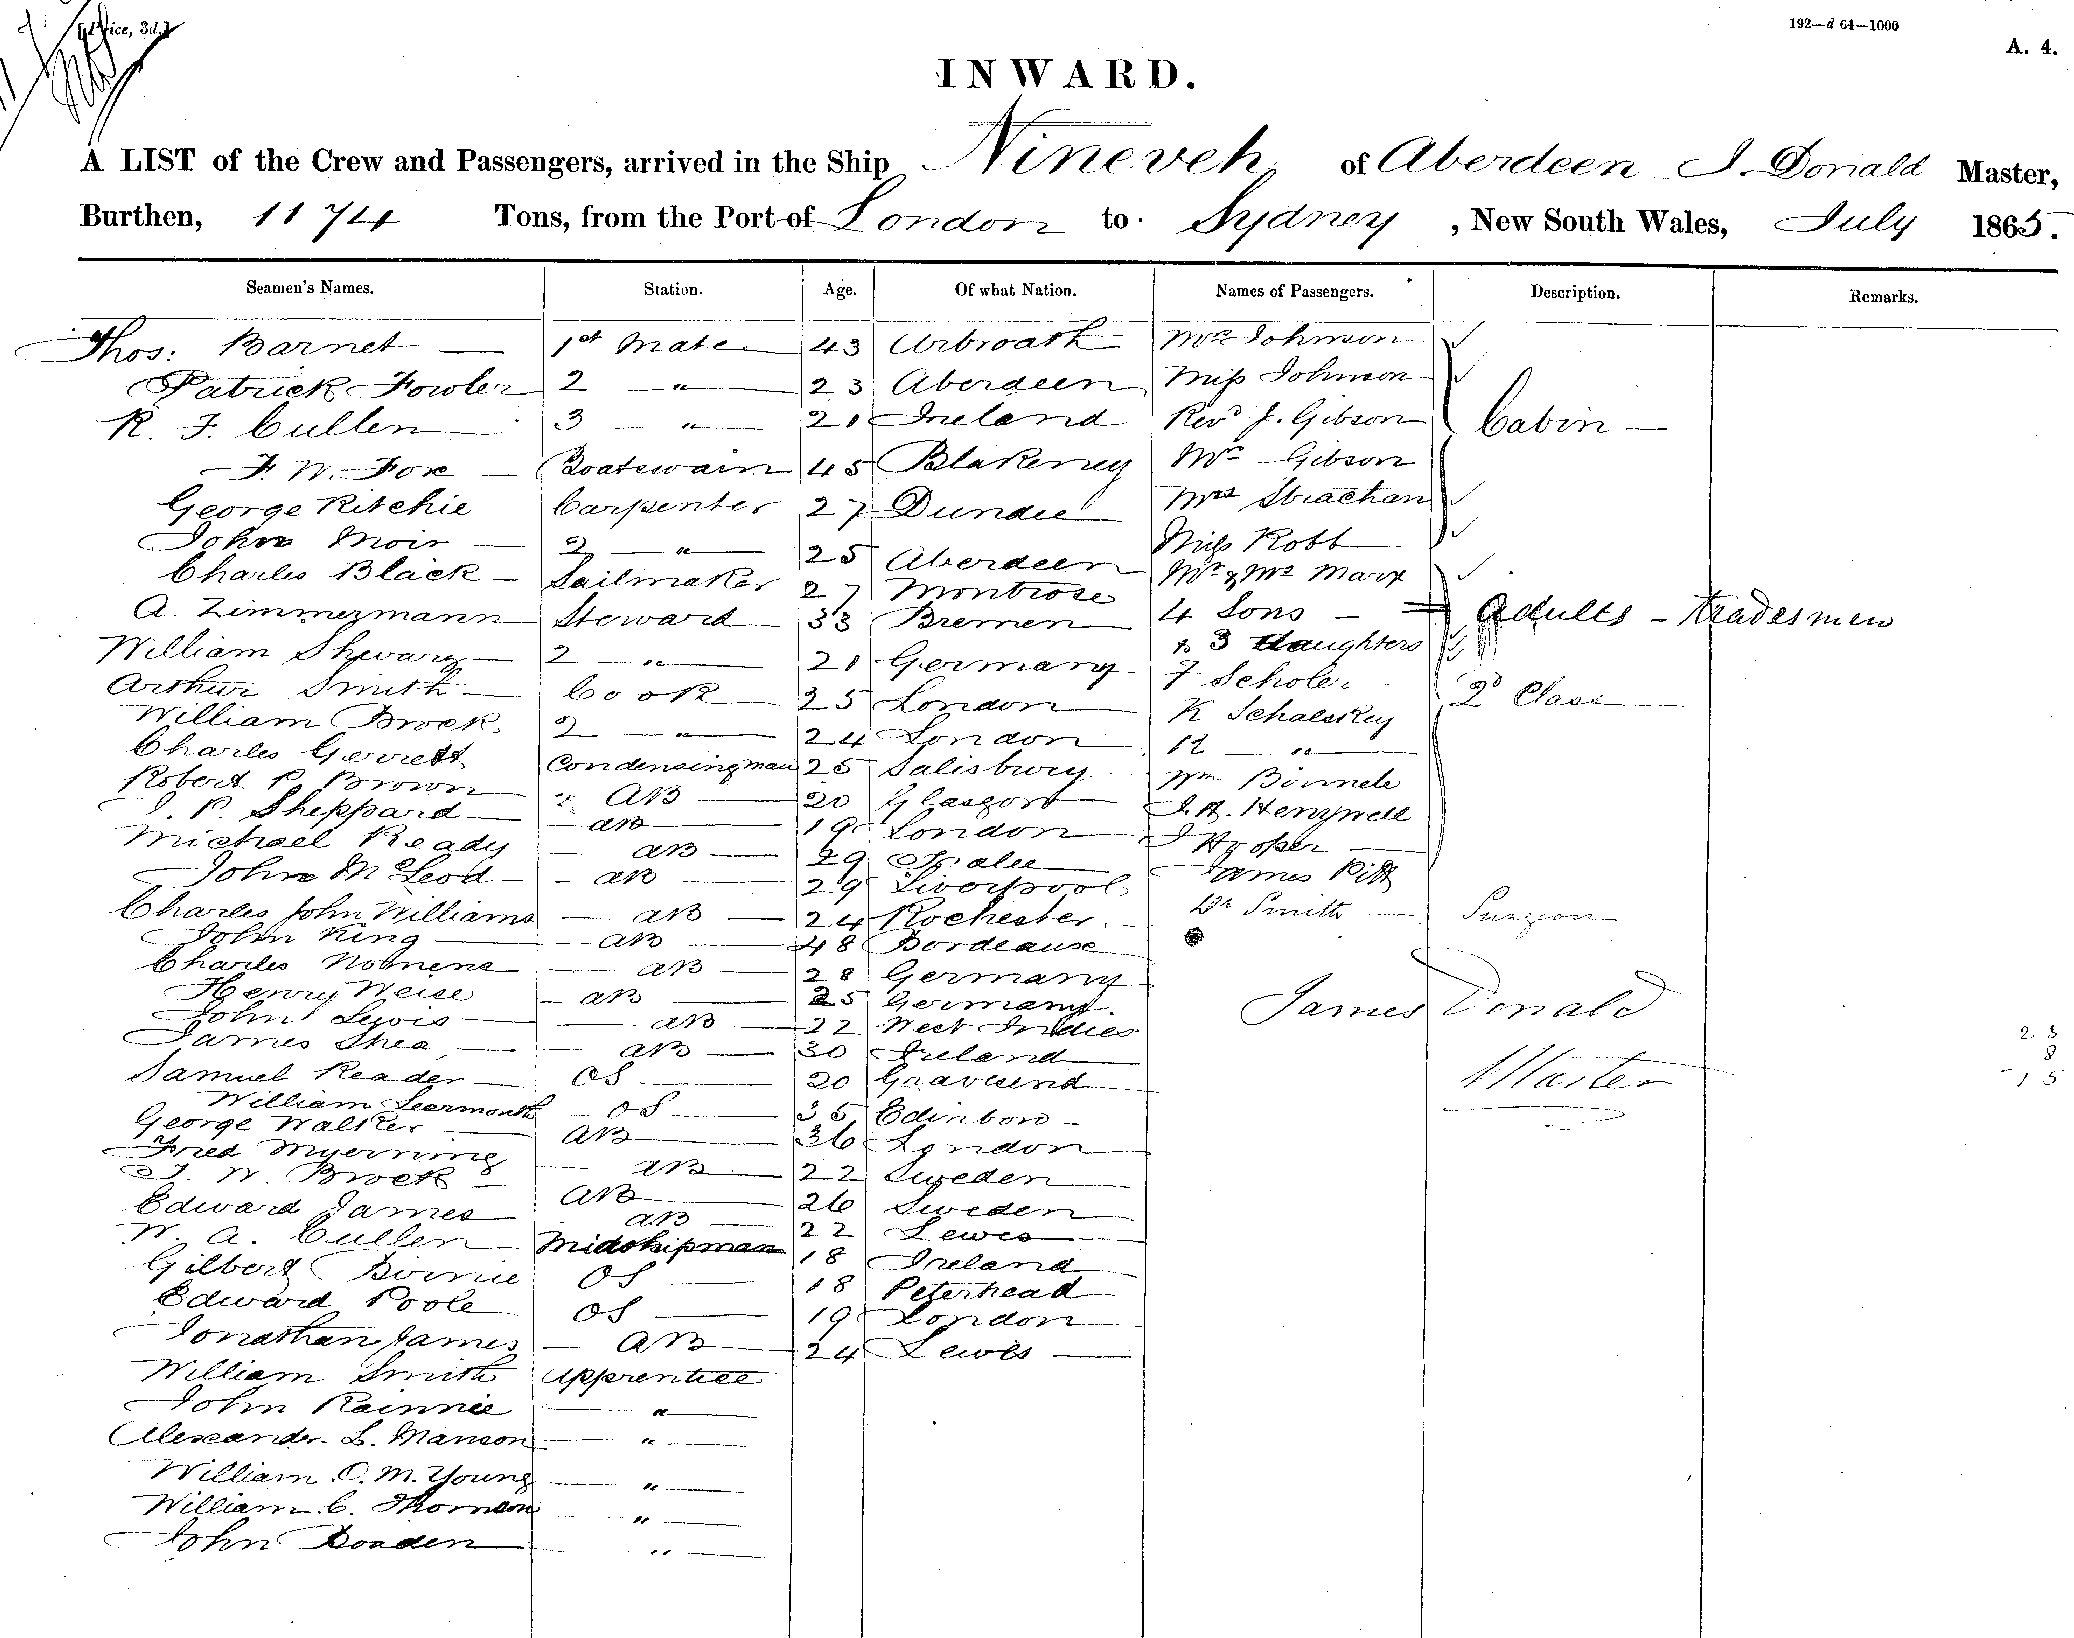 [Price, 3d.]
192—d 64—1000
A. 4.
INWARD.
A LIST of the Crew and Passengers, arrived in the Ship Nineveh of Aberdeen J. Donald Master,
Burthen, 1174 Tons, from the Port of London to Sydney, New South Wales, July 1865.
Seamen's Names. Station. Age. Of what Nation. Names of Passengers. Description. Remarks.
Thos: Barnet — 1st Mate 43 Arbroath Mrs Johnson
Patrick Fowler 2 — " — 23 Aberdeen Miss Johnson
R. F. Cullen 3 — " — 21 Ireland Revd J. Gibson Cabin —
F. W. Fox — Boatswain 45 Blakeney Mrs Gibson
George Ritchie Carpenter 27 Dundee Mrs Strachan
John Moir — 2 — " — 25 Aberdeen Miss Robb
Charles Black — Sailmaker 27 Montrose Mr & Mrs Marx
A. Zimmermann Steward 33 Bremen 4 Sons — Adults — tradesmen
William 2 — " — 21 Germany & 3 Daughters
Arthur Smith — Cook 25 London F Scholer 2d Class
William Brock 2 — " — 24 London K
Charles Gerrett Condensingman 25 Salisbury 12 — " —
Robert P. Brown " AB — 20 Glasgow Wm
J. P. Sheppard — AB — 19 London J. H.
Michael Ready — AB — 29 Tralee J Hooper —
John McLeod — AB — 29 Liverpool James Pitt
Charles John Williams — AB — 24 Rochester Dr Smith — Surgeon
John King — AB — 48 Bordeause
Charles — AB — 28 Germany
Henry Weise — AB — 25 Germany James Donald
John Lewis — AB — 22 West Indies
James Shea — AB — 30 Ireland
Samuel Reader — OS — 20 Gravesend Master
William Learmouth — OS — 35 Edinboro
George Walster AB — 36 London
Fred — AB — 22 Sweden
J. W. Brock — AB — 26 Sweden
Edward James AB — 22 Lewes
W. A. Cullen Midshipman 18 Ireland
Gilbert OS — 18 Peterhead
Edward Poole OS — 19 London
Jonathan James — AB — 24 Lewes —
William Smith Apprentice
John Rainnie "
Alexander L. Manson "
William O. M. Young "
William C. Thomson "
John "
2 3
8
15